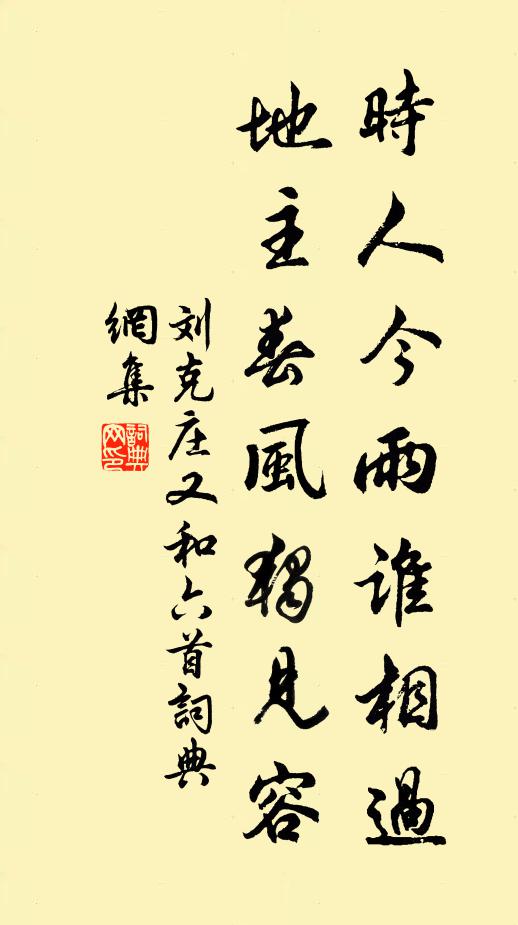 時人今雨誰相過
地主春風獨見容
刘克庄又和六首詞典
網集
詞典
网印